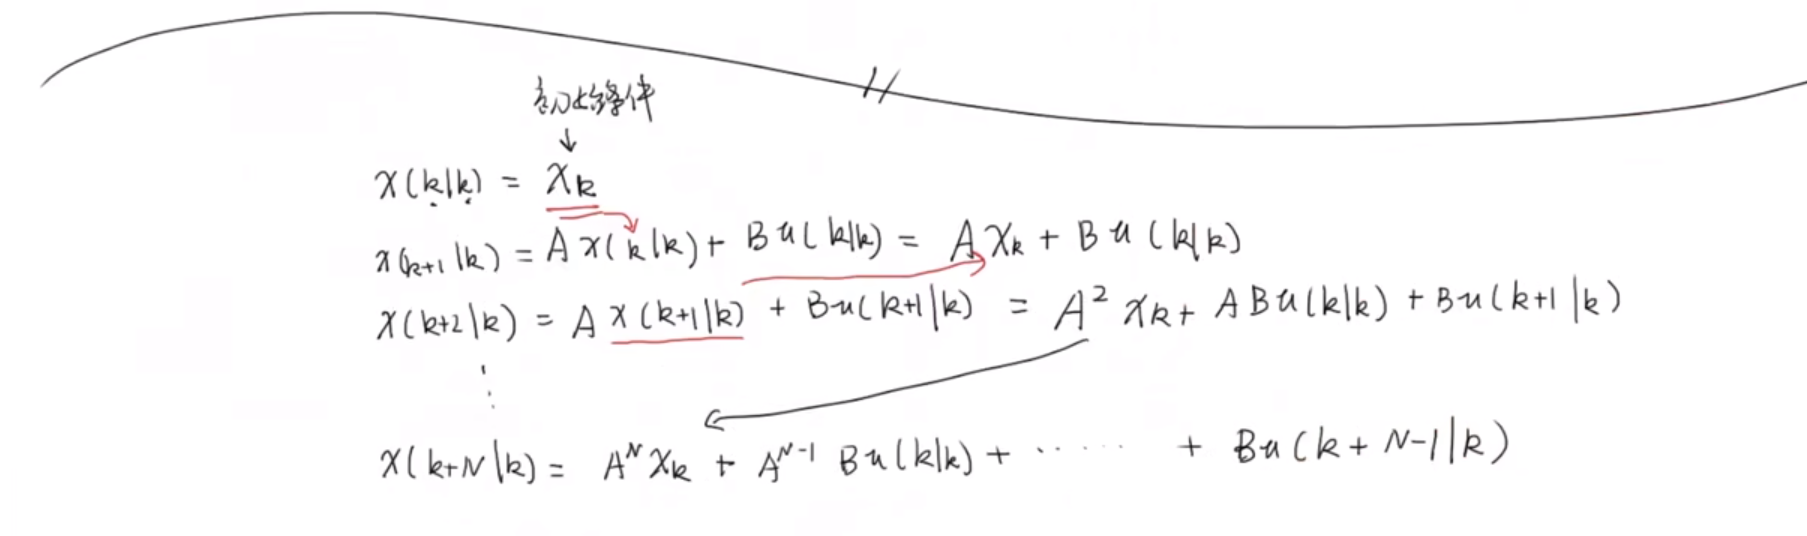 初始条件
↓
x(k|k) = x_k
x(k+1|k) = A x(k|k) + B u(k|k) = A x_k + B u(k|k)
x(k+2|k) = A x(k+1|k) + B u(k+1|k) = A² x_k + A B u(k|k) + B u(k+1|k)
⋮
x(k+N|k) = A^N x_k + A^{N-1} B u(k|k) + ······ + B u(k+N-1|k)